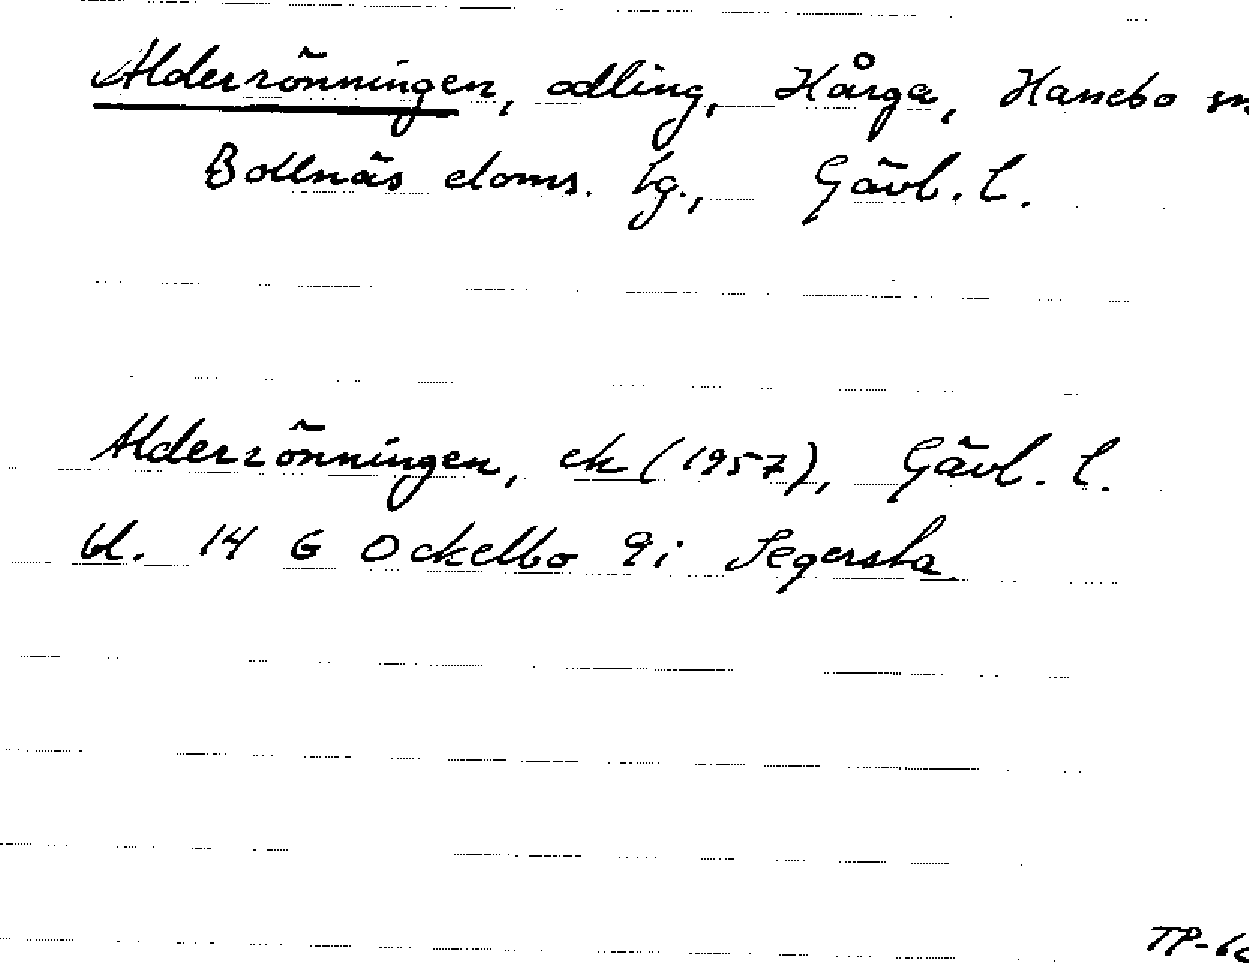 Alderrönningen, odling, Hårga, Hanebo sn
Bollnäs doms. tg., Gävl. l.
Alderrönningen, ek (1957), Gävl. l.
bl. 14 G Ockelbo 9i Segersta
TP-60